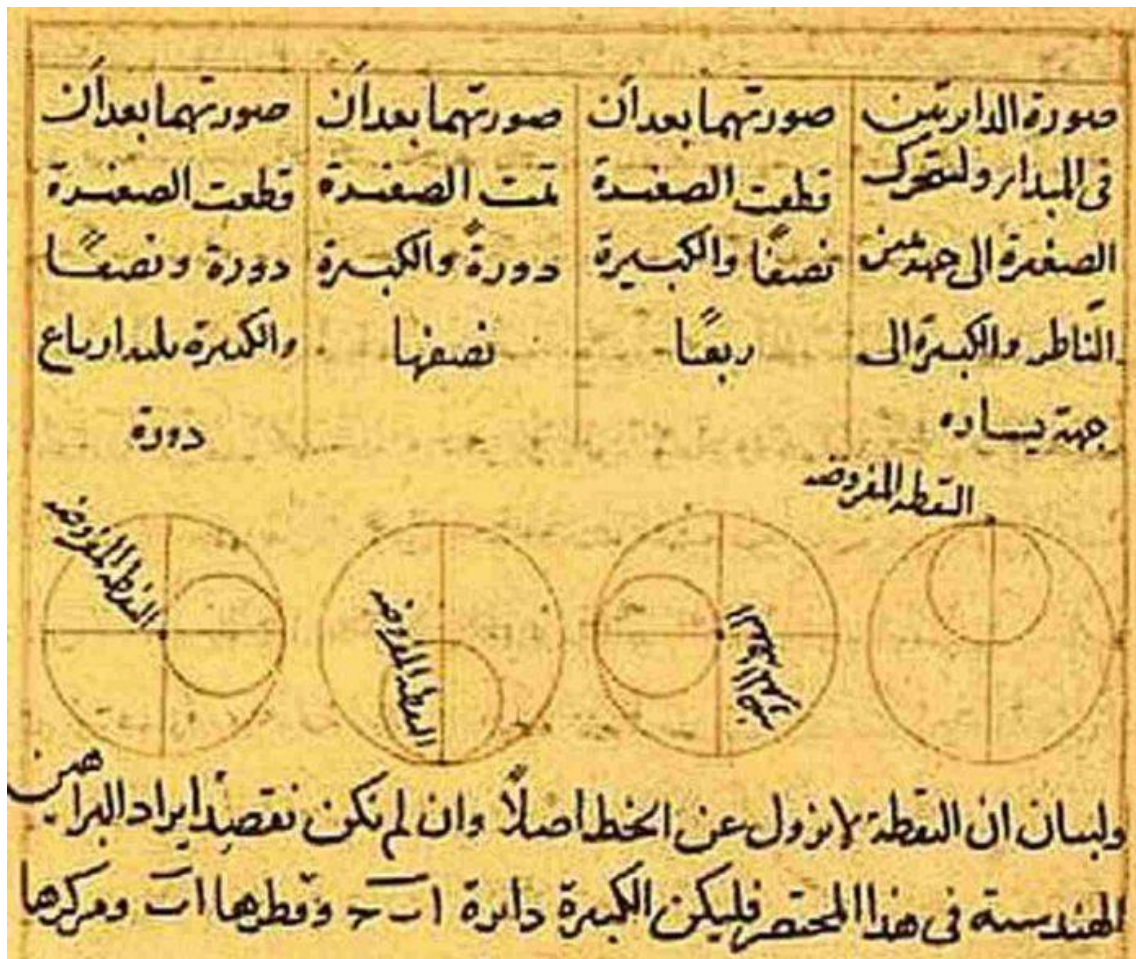 صورة الدائرتين
فى المبدا ولتتحرك
الصغيرة الى جهة يمين
الناظر والكبيرة الى
جهة يساره
صورتهما بعد أن
قطعت الصغيرة
نصفًا والكبيرة
ربعًا
صورتهما بعد أن
تمت الصغيرة
دورةً والكبيرة
نصفها
صورتهما بعد أن
قطعت الصغيرة
دورة ونصفًا
والكبيرة ثلثة ارباع
دورة
النقطة المفروضة
النقطة المفروضة
النقطة المفروضة
النقطة المفروضة
ولبيان ان النقطة لا تزول عن الخط اصلاً وان لم نكن نقصد ايراد البراهين
الهندسية فى هذا المختصر فليكن الكبيرة دائرة ا ب ح وقطرها ا ب ومركزها